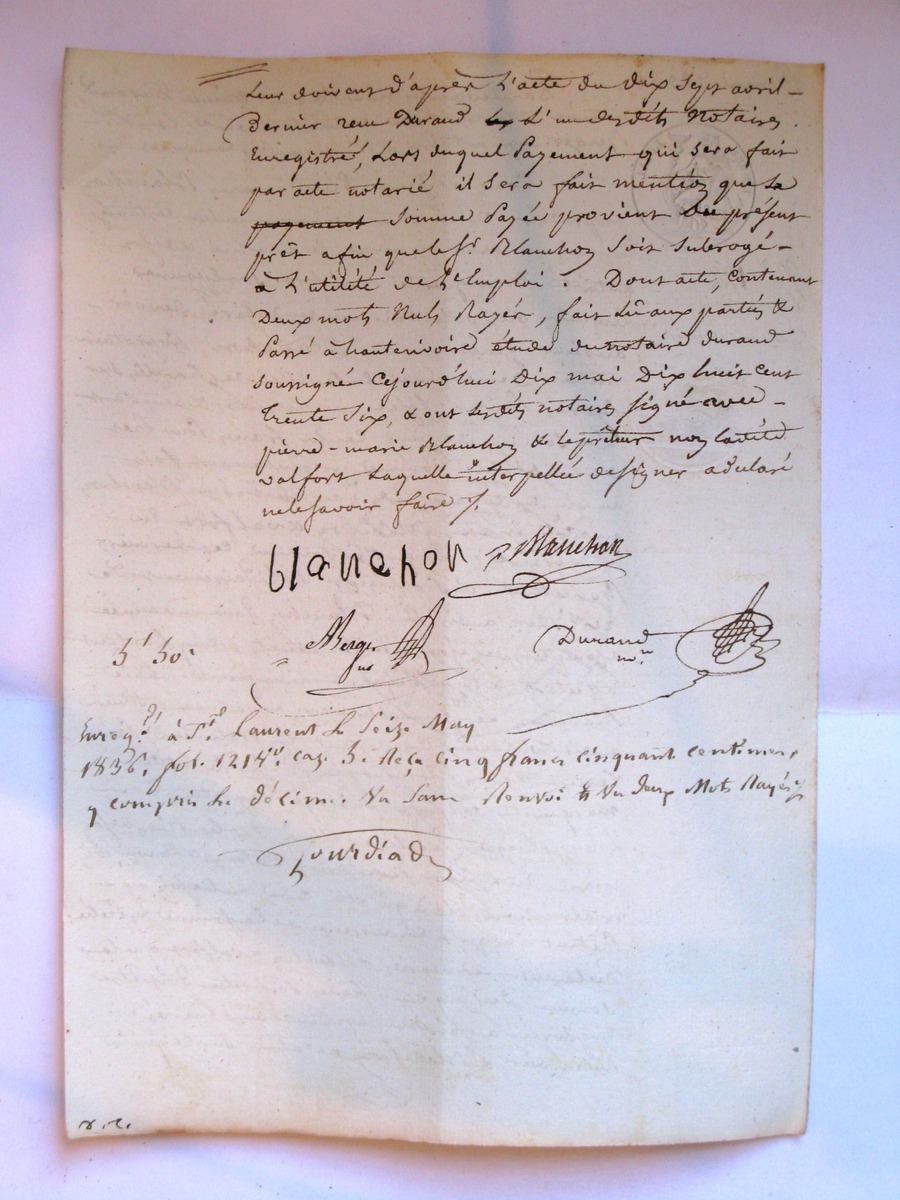 Leur doivent d'après L'acte du Dix Sept avril
Dernier reçu Durand L'un desdits Notaires
Enregistré, Lors duquel Payement qui sera fait
par acte notarié il sera fait mention que la
payement Somme Payée provient du présent
prêt afin que le Sr. Blanchon Soit Subrogé
à L'utilité de L'Emploi. Dont acte, contenant
Deux mots Nuls Rayés, fait Lû aux parties &
Passé à hauterivoire étude du notaire durand
soussigné Cejourd'hui Dix mai Dix huit cent
Trente Six, & ont lesdits notaires signé avec
pierre-marie Blanchon & le prêteur non ladite
valfort Laquelle interpellée de signer a déclaré
ne le savoir faire
blanchon P. Blanchon
Berger Durand
5f 50c
Enregé. à St. Laurent Le Seize May
1836. fol. 121 cas. 5. Reçu cinq francs cinquant centimes,
y compris le décime. Vu Sans Renvoi & Vu deux Mots Rayés